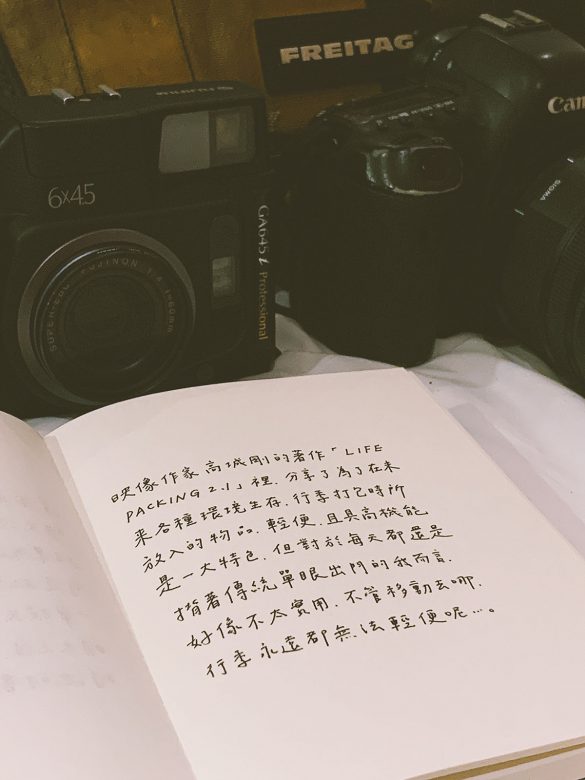 FREITAG
FUJIFILM
6x4.5
GA645i Professional
SUPER-EBC FUJINON 1:4 f=60mm
Can
SIGMA
映像作家高城剛的著作「LIFE
PACKING 2.1」裡，分享了為了在未
來各種環境生存，行李打包時所
放入的物品，輕便，且具高機能
是一大特色，但對於每天都還是
揹著傳統單眼出門的我而言，
好像不太實用，不管移動去哪，
行李永遠都無法輕便呢…。